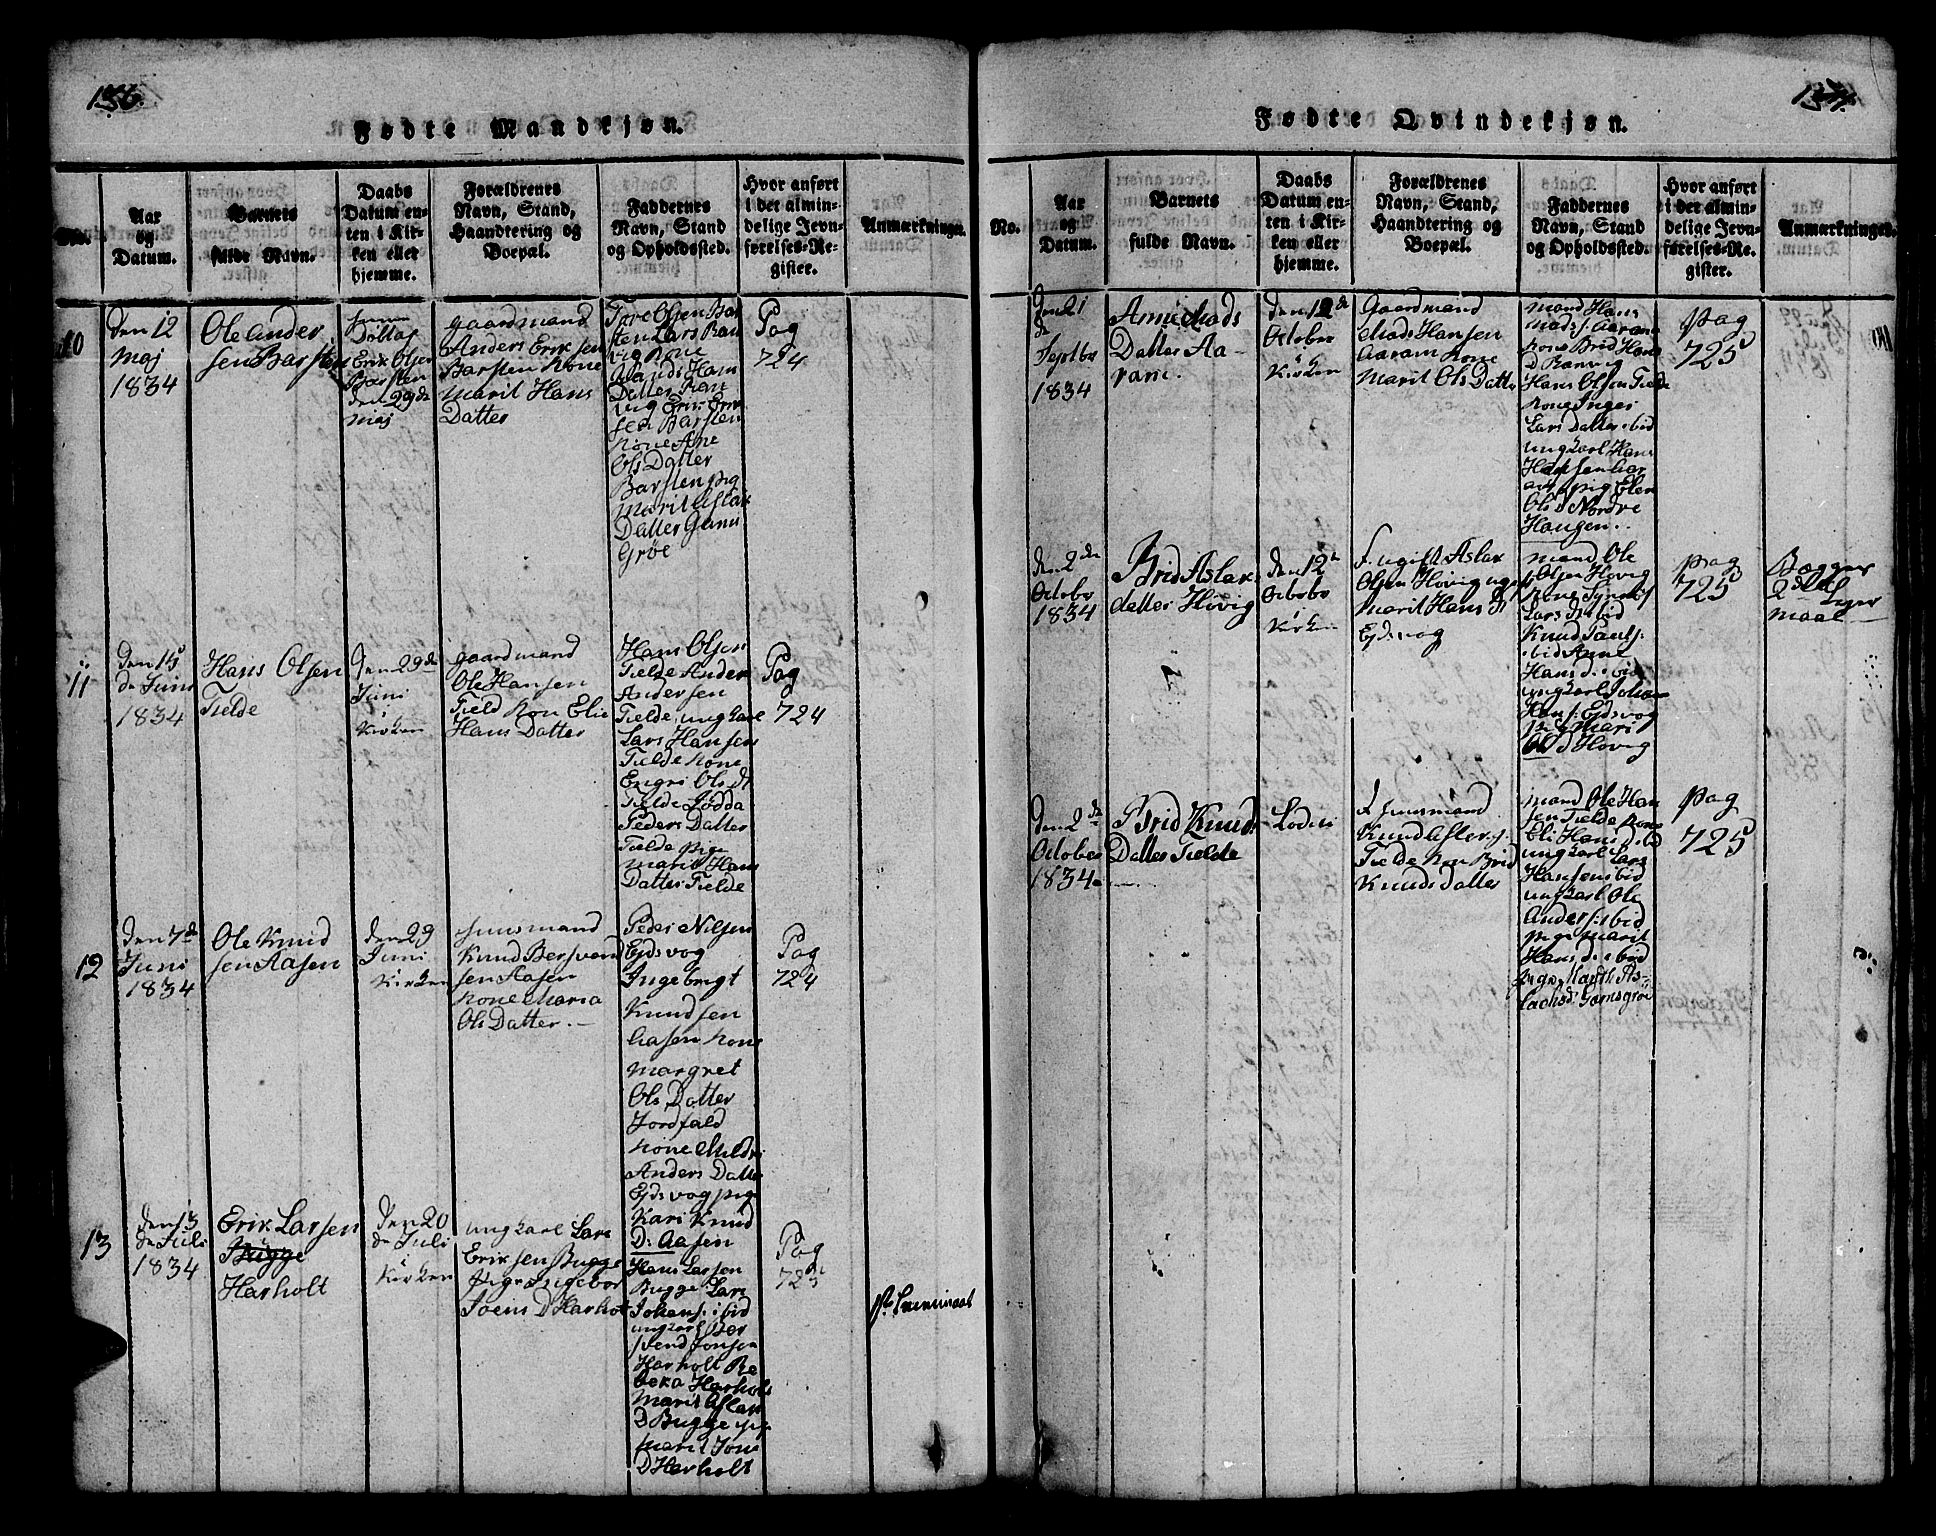 136.
Fødte Mandkjøn.
No.
Aar
og
Datum.
Barnets
fulde Navn.
Daabs
Datum en-
ten i Kir-
ken eller
hjemme.
Forældrenes
Navn, Stand,
Haandtering og
Boepæl.
Faddernes
Navn, Stand
og Opholdssted.
Hvor anført
i det almin-
delige Jevn-
førelses-Re-
gister.
Anmærkninger.
10
den 12
Maj
1834
Ole Ander
sen Barsten
Døttag
Erik Olsen
Barsten
den 29de
Maj
Gaardmand
Anders Eriksen
Barsten Kone
Marit Hans
Datter
Tore Olsen Bar
sten Lars Ran
vig Kone
Hans
Datter Ran
vig Erik Erik
sen Barsten
Kone Ane
Ols Datter
Barsten pig
Marit Aslak
Datter
Grøe
Pag
724
11
den 15
de Juni
1834
Hans Olsen
Tielde
den 29de
Juni
Kirken
Gaardmand
Ole Hansen
Tield Kon Elie
Hans Datter
Hans Olsen
Tielde Ander
Andersen
Tielde, ungkarl
Lars Hansen
Tielde Kone
Engri Ols dt
Tielde Lødda
Peders Datter
Tielde pige
Marit Hans
Datter Tielde
Pag
724
12
den 7de
Juni
1834
Ole Knud
sen Aasen
den 29
Juni
Kirken
Huusmand
Knud Bersvend
sen Aasen
Kone Maria
Ols Datter.
Peder Nilsen
Ejdsvog
Ingebregt
Knudsen
Aasen Kone
Margret
Ols Datter
Jordfald
Kone Mildri
Anders Datter
Ejdsvog pige
Kari Knud
D: Aasen
Pag
724
13
den 13
de Juli
1834
Erik Larsen
Bugge
Harholt
den 20
de Juli
Kirken
ungkarl Lars
Eriksen Bugge
pige Ingebor
Joens D Harholt
Hans Larsen
Bugge Lars
Johans: ibid
ungkarl Ber
svend Jonsen
Harholt Re
beka Harholt
Marit Aslak
D Bugge pig
Marit Jons
D Harholt
Pag
725
137.
Fødte Qvindekjøn.
No.
Aar
og
Datum.
Barnets
fulde Navn.
Daabs
Datum en-
ten i Kir-
ken eller
hjemme.
Forældrenes
Navn, Stand,
Haandtering og
Boepæl.
Faddernes
Navn, Stand
og Opholdssted.
Hvor anført
i det almin-
delige Jevn-
førelses-Re-
gister.
Anmærkninger.
den 21
de
Septbr
1834
Anne Mads
Datter Aa-
ram.
den 12de
October
Kirken
Gaardmand
Mads Hansen
Aaram Kone
Marit Ols Datter
Mand Hans
Mads: Aaram
Kone Brid Hans
D Ranvig
Hans Olsen Tielde
Kone Inger
Lars Datter ibid
ungkarl Hans
pig Elen
Ols D Nordre
Haugen.
Pag
725
den 2den
Octobr
1834
Brid Aslak
datter Høvig
den 12te
Octobr
Kirken
F. ugift Aslak
Olsen Høvig ugift
Marit Hans D
Ejdsvog
Mand Ole
Olsen Høvig
Kone Synnøv
Lars D ibid
Knud Pauls:
ibid Anne
Hans d. ibid
ungkarl Johan
Hans: Ejdsvog
pig Mari
Ols D Høvig
Pag
725
Begges
2det
Leyer
maal
den 2de
October
1834
Brid Knuds
Datter Tielde
F Huusmand
Knud
Tielde Kon Brid
Knuds datter
Mand Ole Han
sen Tielde Kone
Eli Hans D ibid
ungkarl Lars
Hansen ibid
ungkarl Ole
Anders: ibid
pige Marit
Hans D. ibid
pige Marth As-
lachsd: Gamsgrøe
Pag
725